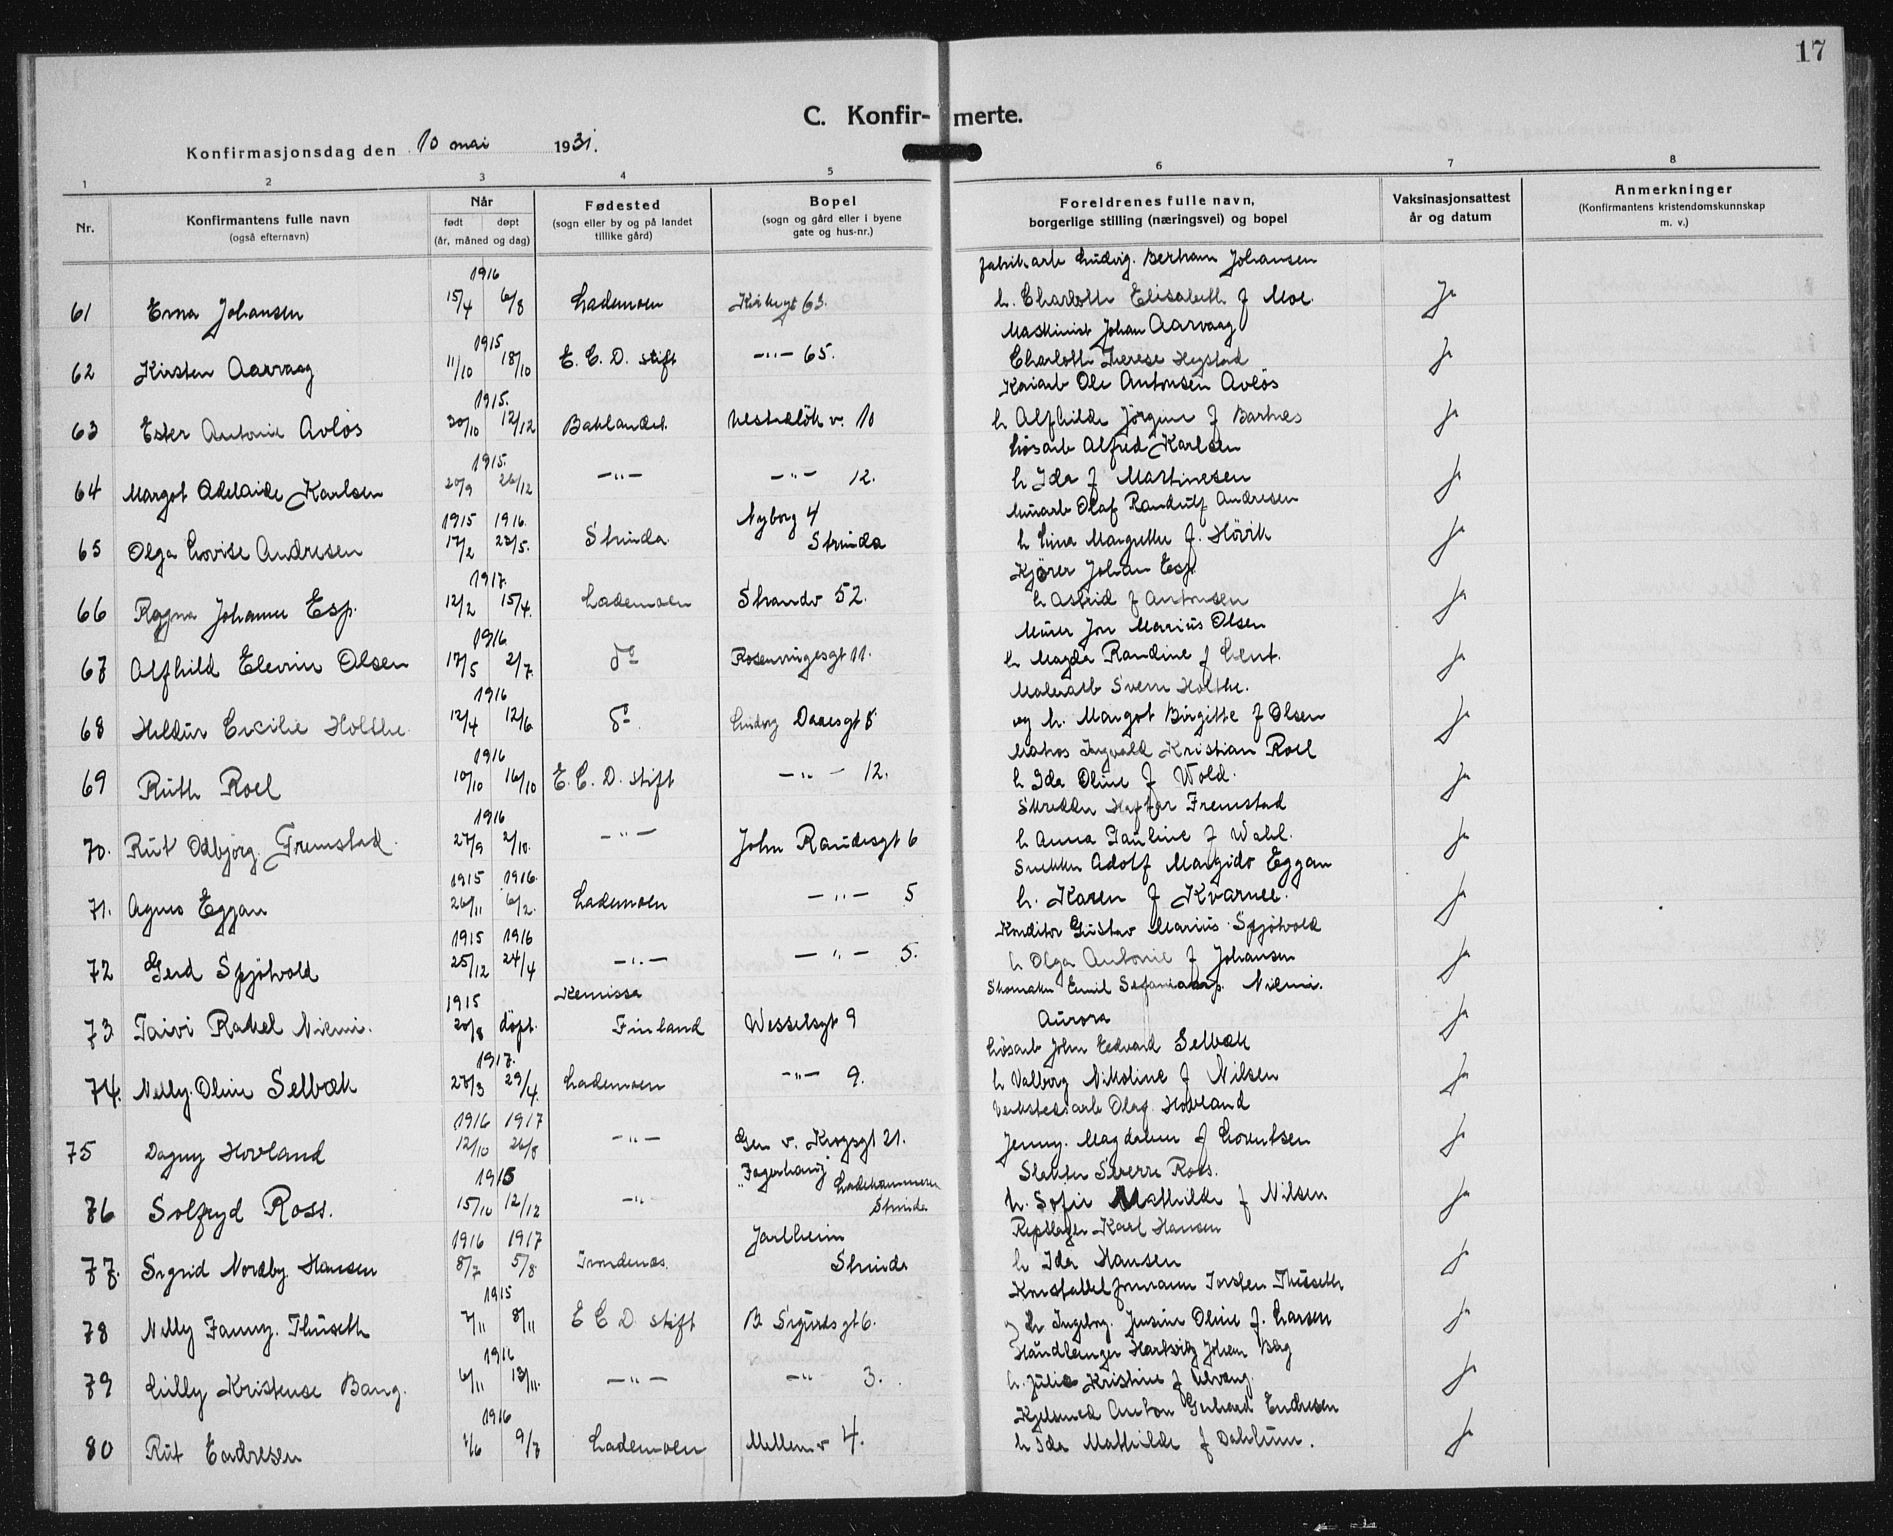 17
C. Konfir- merte.
Konfirmasjonsdag den 10 mai 1931.
1 2 3 4 5 6 7 8
Nr. Konfirmantens fulle navn (også efternavn) Når født døpt (år, måned og dag) Fødested (sogn eller by og på landet tillike gård) Bopel (sogn og gård eller i byene gate og hus-nr.) Foreldrenes fulle navn, borgerlige stilling (næringsvei) og bopel Vaksinasjonsattest år og datum Anmerkninger (Konfirmantens kristendomskunnskap m. v.)
1916 Fabrikarb Ludvig Johansen
61 Erna Johansen 15/4 6/8 Lademoen Kirkegt 63. h. Charlotte Elisabeth f Moe. Ja
1915 Maskinist Johan Aarvaag
62 Kirsten Aarvaag 11/10 18/10 E. C. D. stift -"- 65. Charlotte Therese Hegstad Ja
1915. Ole Antonsen Avløs
63 Ester Antonie Avløs 30/10 12/12 Baklandet. v. 10 h Alfhilde Jørgine f Bartnes Ja
1915. Løsarb Alfred Karlsen
64 Margot Adelaide Karlsen 20/9 26/12 -"- -"- 12. h Ida f Martinesen Ja
1915 1916. Nyborg 4 Murarb Olaf Randulf Andresen
65 Olga Lovise Andresen 17/2 23/5. Strinda Strinda h Lina Margrethe f. Høvik Ja
1917. Kjører Johan Esp.
66 Ragna Johanne Esp. 12/2 15/4. Lademoen Strandv 52. h Astrid f Antonsen Ja
1916 Murer Jon Marius Olsen
67 Alfhild Elevine Olsen 17/5 2/7. do Rosenvingesgt 11. h Magda Randine f Ja
1916 Malerarb Sverre Holthe.
68 Hildur Cecilie Holthe. 12/4 12/6 do. Ludvig Daaesgt 8 og h. Margot Birgitte f Olsen Ja
1916 Matros Ingvald Kristian Roel
69 Ruth Roel 10/10 16/10 E. C. D. stift -"- 12. h Ida Oline f Wold. Ja
1916 Skredder Fremstad
70. Rut Odbjørg Fremstad. 27/9 2/10. -"- John Randesgt 6 h Anna Pauline f Wahl. Ja
1915 1916. Snekker Adolf Margido Eggan
71. Agnes Eggan 26/11 6/2. Lademoen -"- 5 h. Karen f Kvarnee. Ja
1915 1916 Konditor Gustav Marius Spjøtvold
72 Gerd Spjøtvold 25/12 24/4 -"- -"- 5. h Olga Antonie f Johansen Ja
1915 Skomaker Emil Niemi.
73 Taivi Rakel Niemi. 20/8 døpt. Finland Wesselsgt 9 Aurora Ja
1917. Løsarb John Edvard Selbæk
74. Nelly Oline Selbæk 27/3 29/4. Lademoen -"- 9. h Valborg Nikoline f Nilsen Ja
1916 1917 Verkstedsarb Olag Hovland
75 Dagny Hovland 12/10 26/8 -"- Gen v. Krogsgt 21. Jenny Magdalene f Lorentsen Ja
1915 "Fagerhaug" Ladehammeren Strinda Slakter Sverre Ross.
76 Solfryd Ross. 15/10 12/12 -"- h. Sofie Mathilde f Nilsen Ja
1916 1917 Jarlheim Repslager Karl Hansen
77. Sigrid Nordby Hansen 8/7 5/8 Trondenes. Strinda h Ida Hansen Ja
1915 Torsten Thuseth
78 Nelly Fanny Thuseth 7/11 8/11 E C D stift B Sigurdsgt 6. og h Ingeborg Jensine Oline f. Larsen Ja
1916 Håndlanger Hartvig Johan Bang
79 Lilly Kristense Bang. 6/11 13/11. -"- -"- 3. h. Julie Kristine f Ulvang. Ja
1916 Kjelsmed Anton Gerhard Endresen
80 Rut Endresen 1/6 9/7 Lademoen Mellemv 4. h Ida Mathilde f Dahlum. Ja